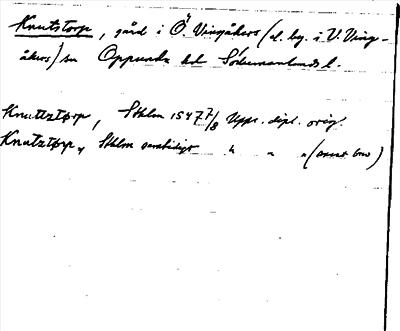 Knutstorp, gård i Ö. Vingåkers (el. by. i V. Ving-
åkers) sn Oppunda hd Södermanlands l.
Knuttztorp, Sthlm 1547 7/8 Upps. dipl. orig.
Knutztorp, Sthlm samtidigt " " " (annat brev)